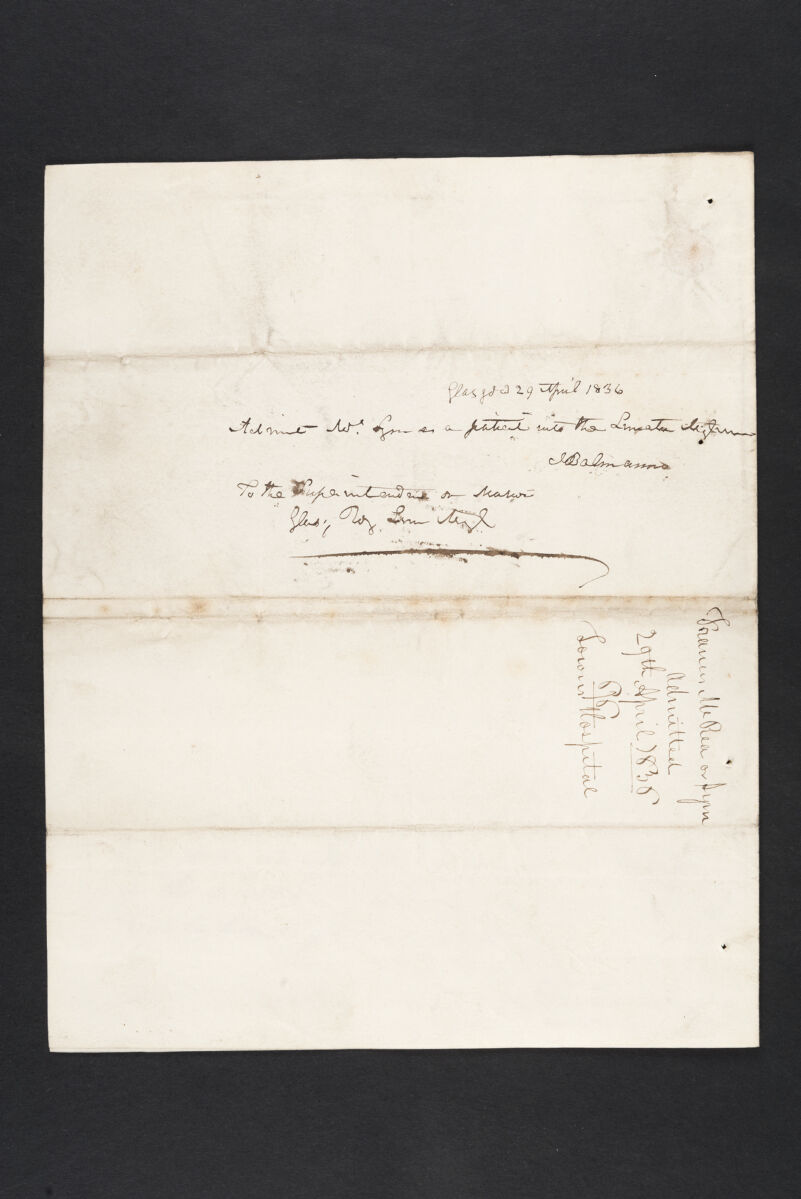 Glasgow 29 April 1836
Admit Mrs. as a patient into the Lunatic Asylum
J Balmanno
To the Superintendent or Matron
Glasg. Roy. Lun. Asyl
Frances McRea or
Admitted
29th April 1836
Towns Hospital